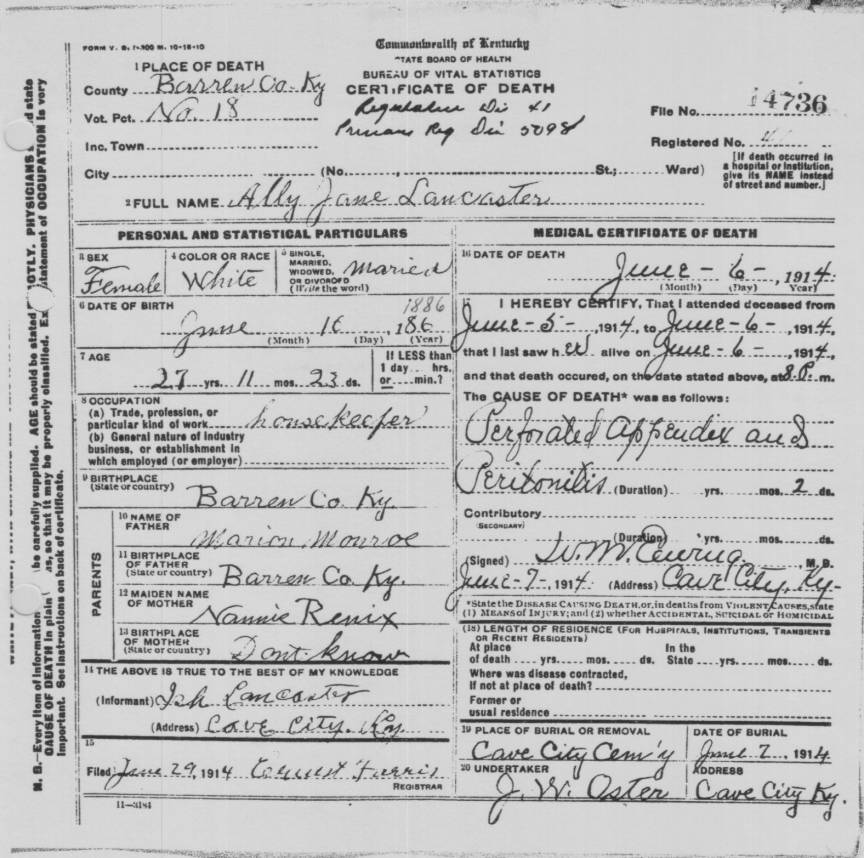 FORM V. S. 1-300 M. 10-18-10
Commonwealth of Kentucky
STATE BOARD OF HEALTH
BUREAU OF VITAL STATISTICS
CERTIFICATE OF DEATH
1 PLACE OF DEATH
County Barren Co. Ky
Vot. Pct. No. 18
Inc. Town
City (No. , St.; Ward)
Registration Dis 41
Primary Reg Dis 5098
File No. 14736
Registered No.
[If death occurred in
a hospital or institution,
give its NAME instead
of street and number.]
2 FULL NAME Ally Jane Lancaster
PERSONAL AND STATISTICAL PARTICULARS
3 SEX
Female
4 COLOR OR RACE
White
5 SINGLE,
MARRIED,
WIDOWED,
OR DIVORCED
(Write the word)
Maried
6 DATE OF BIRTH
1886
June 16, 186
(Month) (Day) (Year)
7 AGE
27 yrs. 11 mos. 23 ds.
If LESS than
1 day hrs.
or min.?
8 OCCUPATION
(a) Trade, profession, or
particular kind of work housekeeper
(b) General nature of industry
business, or establishment in
which employed (or employer)
9 BIRTHPLACE
(State or country)
Barren Co. Ky.
PARENTS
10 NAME OF
FATHER
Marion Monroe
11 BIRTHPLACE
OF FATHER
(State or country)
Barren Co. Ky.
12 MAIDEN NAME
OF MOTHER
Nannie Renix
13 BIRTHPLACE
OF MOTHER
(State or country)
Dont know
14 THE ABOVE IS TRUE TO THE BEST OF MY KNOWLEDGE
(Informant) Ish Lancaster
(Address) Cave City. Ky
15
Filed June 29, 1914 Ernest Farris
REGISTRAR
11-3184
MEDICAL CERTIFICATE OF DEATH
16 DATE OF DEATH
June - 6 - , 1914
(Month) (Day) (Year)
17 I HEREBY CERTIFY, That I attended deceased from
June - 5 - , 1914, to June - 6 - , 1914,
that I last saw h er alive on June - 6 - , 1914,
and that death occured, on the date stated above, at 8 P. m.
The CAUSE OF DEATH* was as follows:
Perforated Appendix and
Peritonitis (Duration) yrs. mos. 2 ds.
Contributory
(SECONDARY)
(Duration) yrs. mos. ds.
(Signed) W. M. , M. D.
June - 7 - , 1914 (Address) Cave City, Ky.
*State the DISEASE CAUSING DEATH, or, in deaths from VIOLENT CAUSES, state
(1) MEANS of INJURY; and (2) whether ACCIDENTAL, SUICIDAL or HOMICIDAL
(18) LENGTH OF RESIDENCE (FOR HOSPITALS, INSTITUTIONS, TRANSIENTS
OR RECENT RESIDENTS)
At place In the
of death yrs. mos. ds. State yrs. mos. ds.
Where was disease contracted,
If not at place of death?
Former or
usual residence
19 PLACE OF BURIAL OR REMOVAL
Cave City Cem'y
DATE OF BURIAL
June 7, 1914
20 UNDERTAKER
J. W. Oster
ADDRESS
Cave City Ky.
N. B.—Every item of information be carefully supplied. AGE should be stated PHYSICIANS state
CAUSE OF DEATH in plain so that it may be properly classified. statement of OCCUPATION is very
important. See instructions on back of certificate.